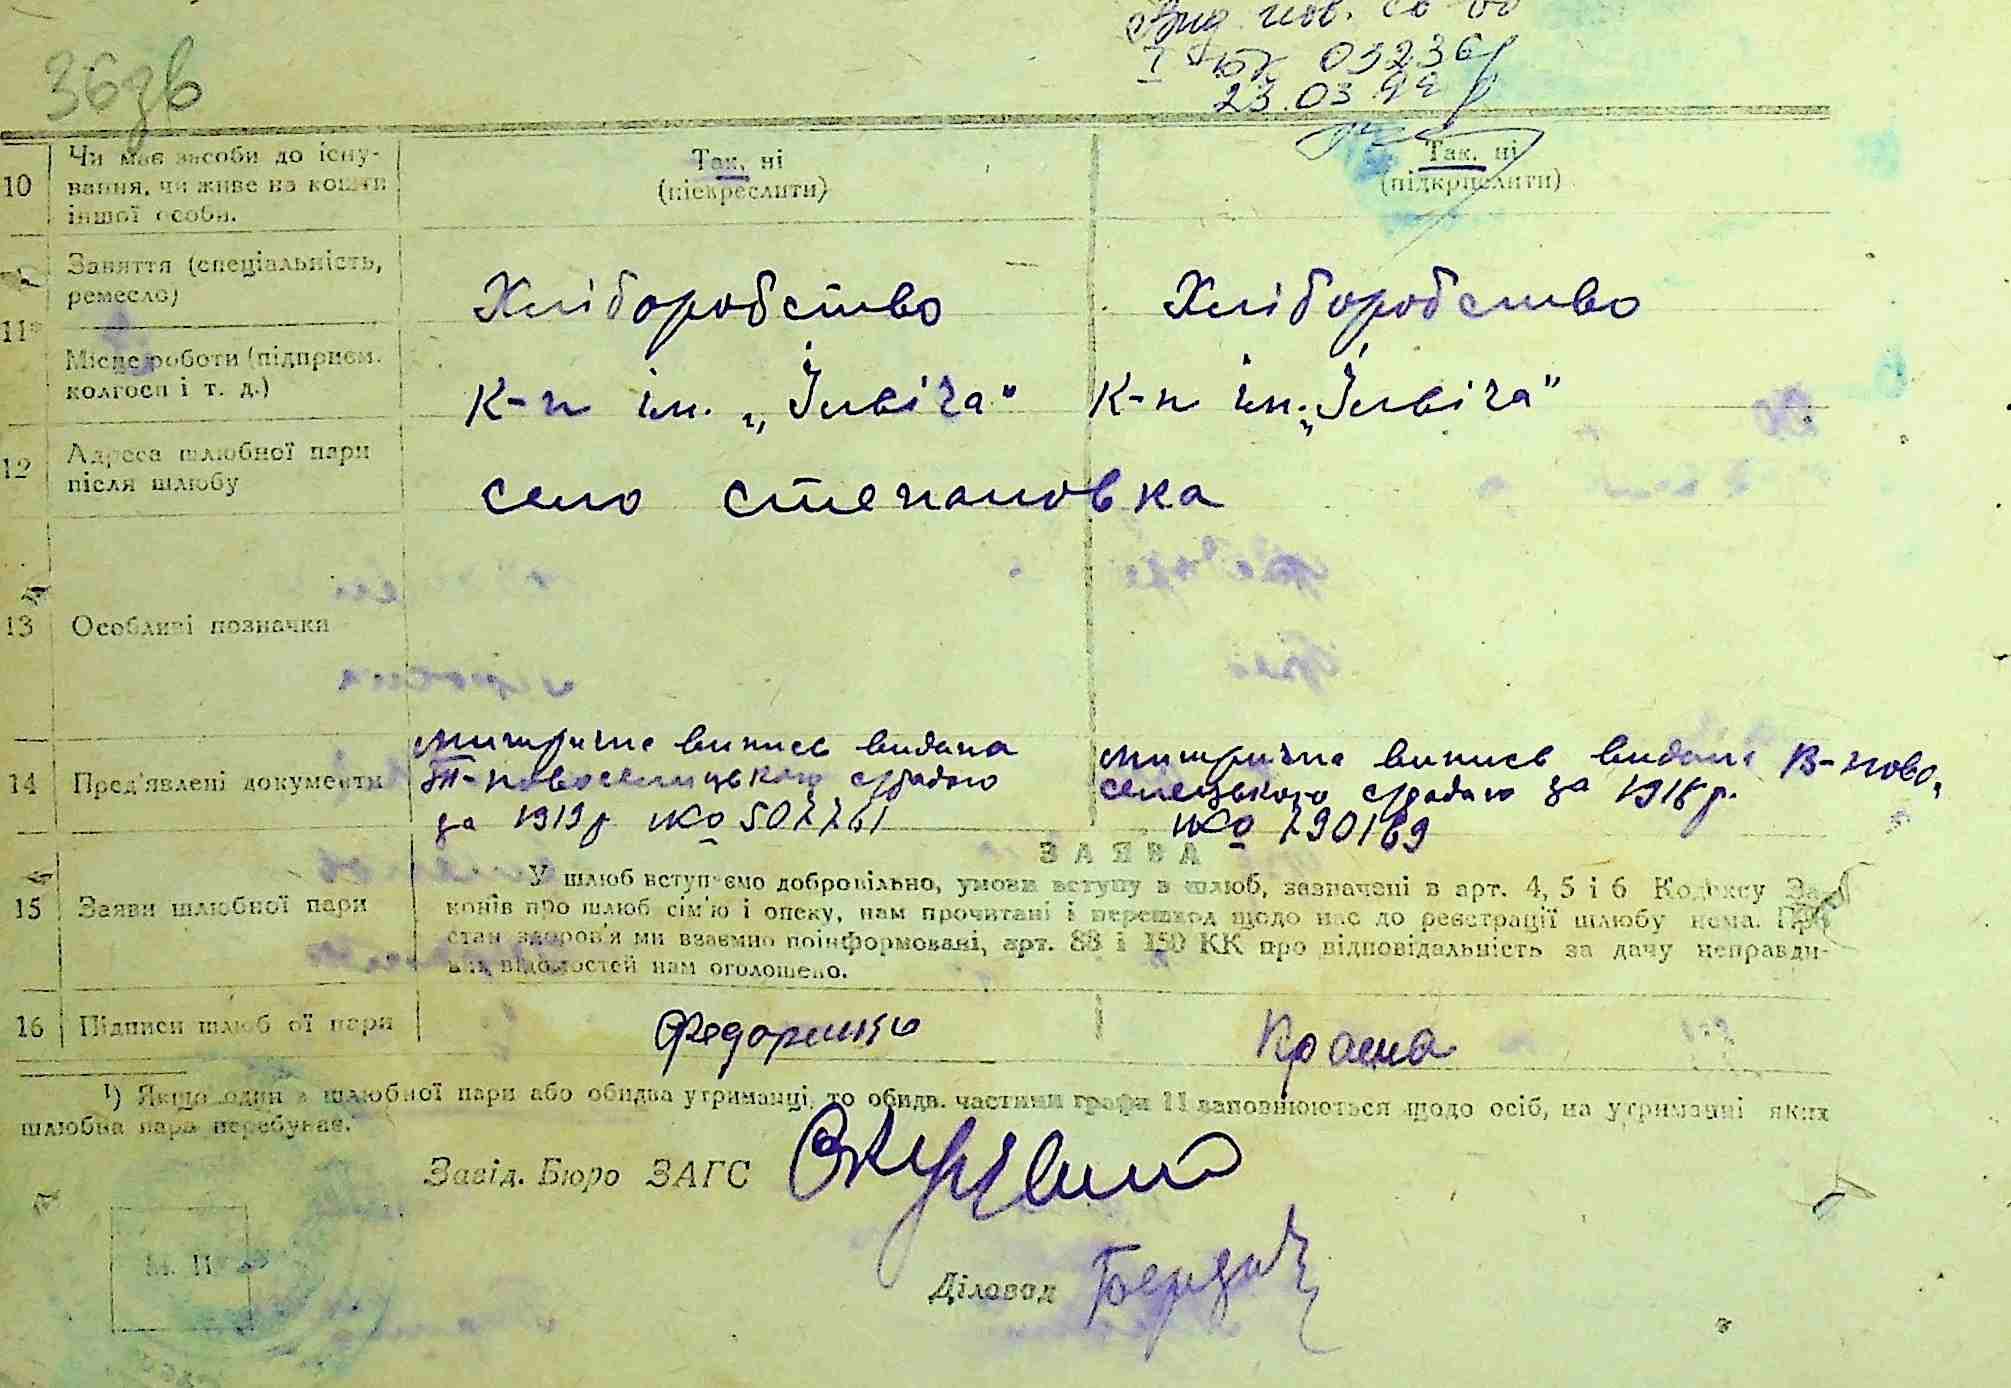 36зв
03236
23.03.99
10 Чи має засоби до існу-
вання, чи живе на кошти
іншої особи.
Так, ні
(піскреслити)
Так, ні
(підкрпслити)
11 Заняття (спеціальність,
ремесло)
Хліборобство
Хліборобство
Місце роботи (підприєм.
колгосп і т. д.)
К-п ім. „Ілвіча"
К-п ім. „Ілвіча"
12 Адреса шлюбної пари
після шлюбу
село степановка
13 Особливі позначки
14 Пред'явлені документи
метрична випись видана
новоселицького с/радою
за 1919р ИКО 507761
метрична випись видана В-ново-
селецького с/радою за 1918р.
ИКО 790169
ЗАЯВА
15 Заяви шлюбної пари
У шлюб вступаємо добровільно, умови вступу в шлюб, зазначені в арт. 4, 5 і 6 Кодексу За-
конів про шлюб сім'ю і опеку, нам прочитані і перешкод щодо нас до реєстрації шлюбу нема. Про
стан здоров'я ми взаємно поінформовані, арт. 88 і 150 КК про відповідальність за дачу неправди-
вих відомостей нам оголошено.
16 Підписи шлюб ої пари
Федоренко
Красна
¹) Якщо один з шлюбної пари або обидва утриманці, то обидв. частини графи 11 заповнюються щодо осіб, на утриманні яких
шлюбна пара перебуває.
Завід. Бюро ЗАГС
Діловод
М. П.